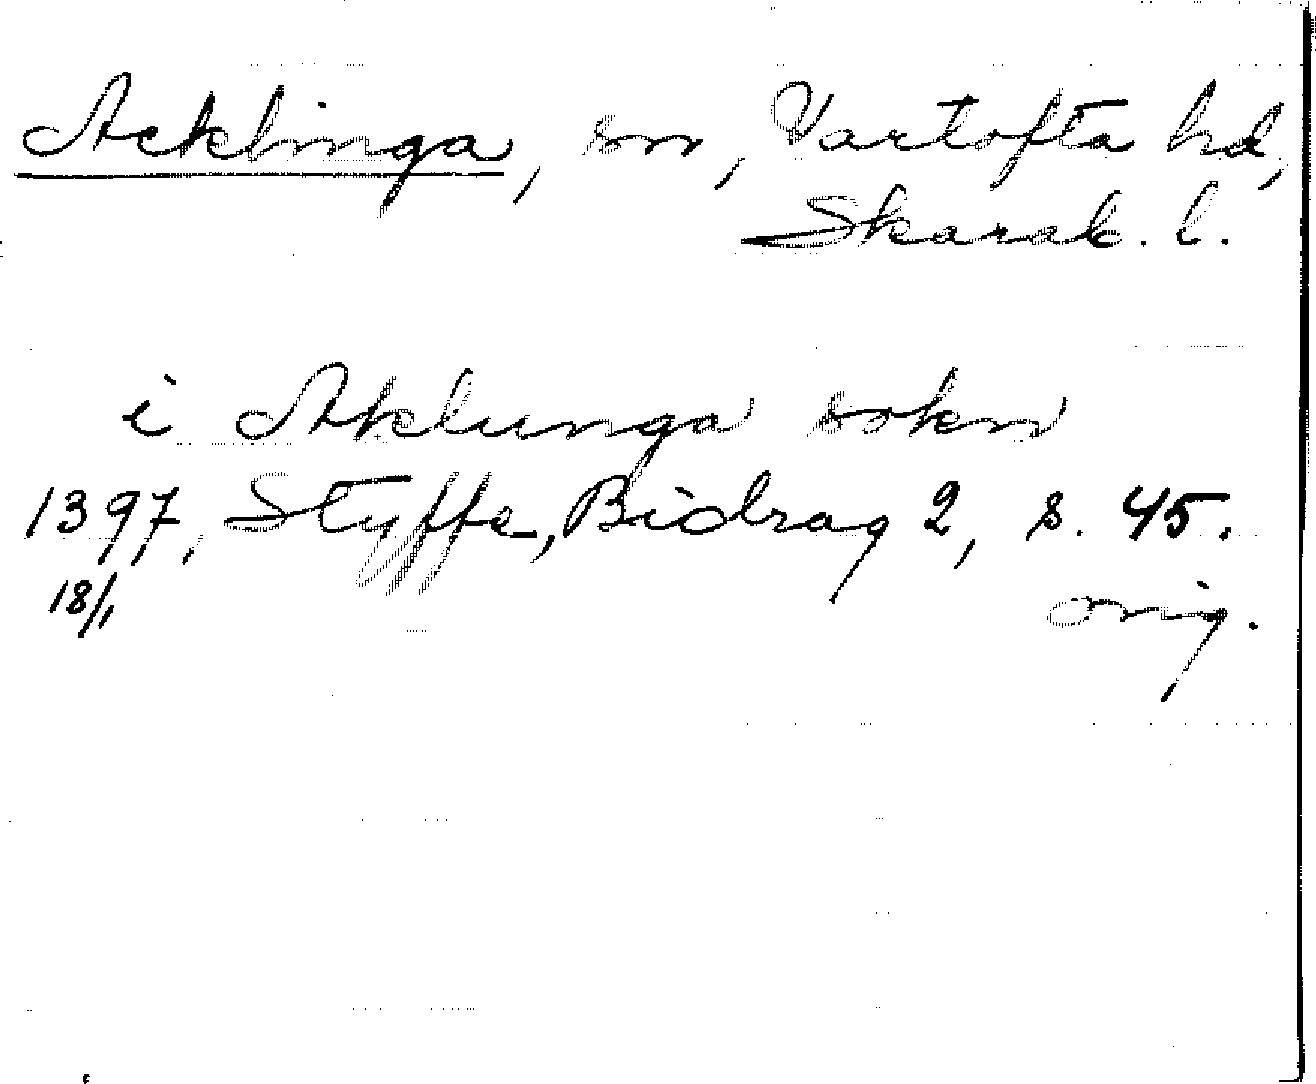 Acklinga, sn, Vartofta hd,
Skarab. l.
i Aklunga sokn
1397, Styffe, Bidrag 2, s. 45.
18/1 orig.